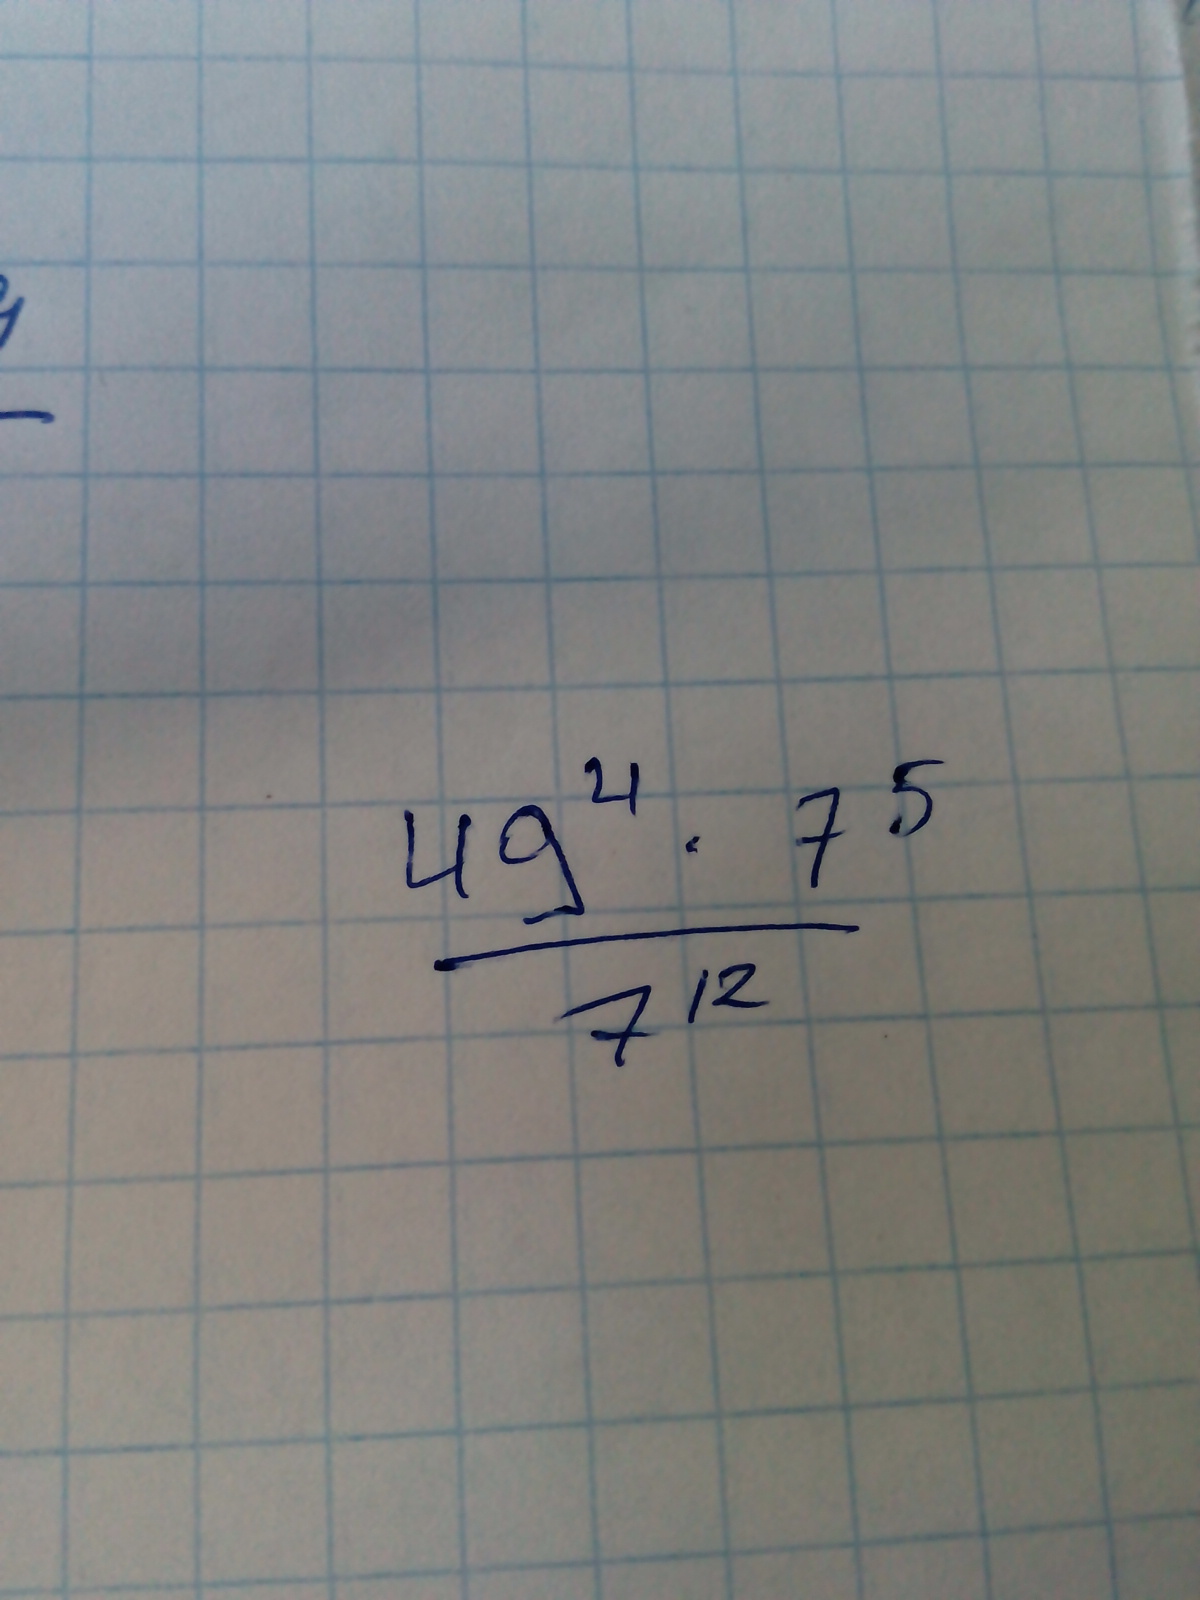 49⁴ · 7⁵
7¹²